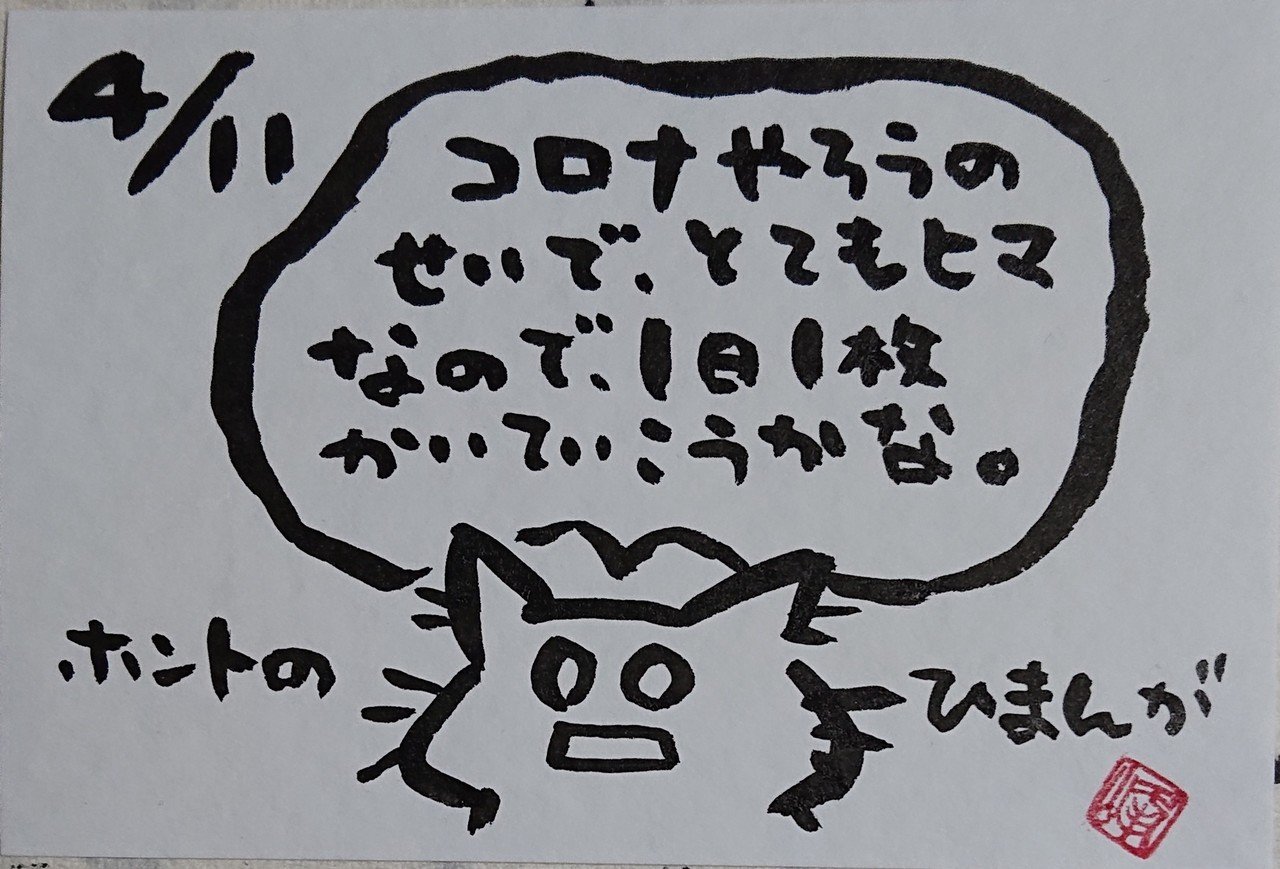 4/11
コロナやろうの
せいで、とてもヒマ
なので、1日1枚
かいていこうかな。
ホントの
ひまんが